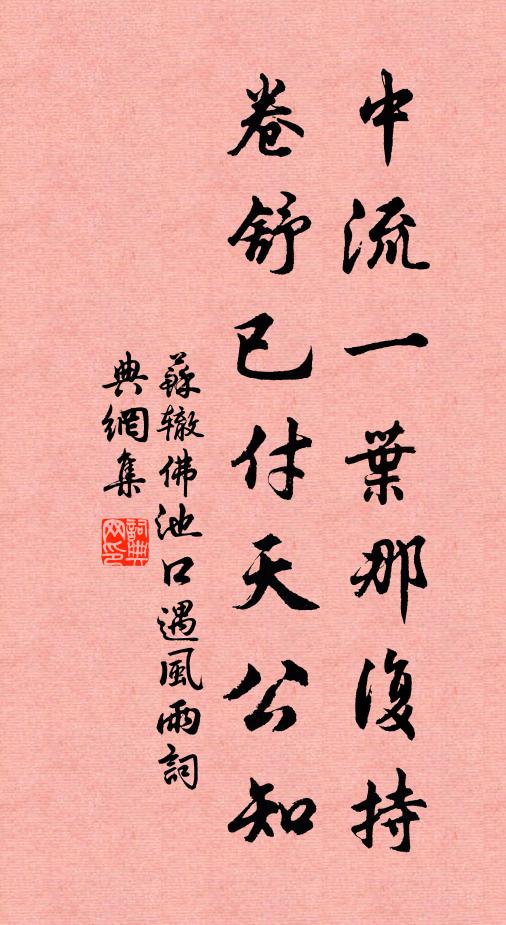 中流一葉那復持
卷舒已付天公知
蘇轍佛池口遇風雨詞
典網集
詞典網印